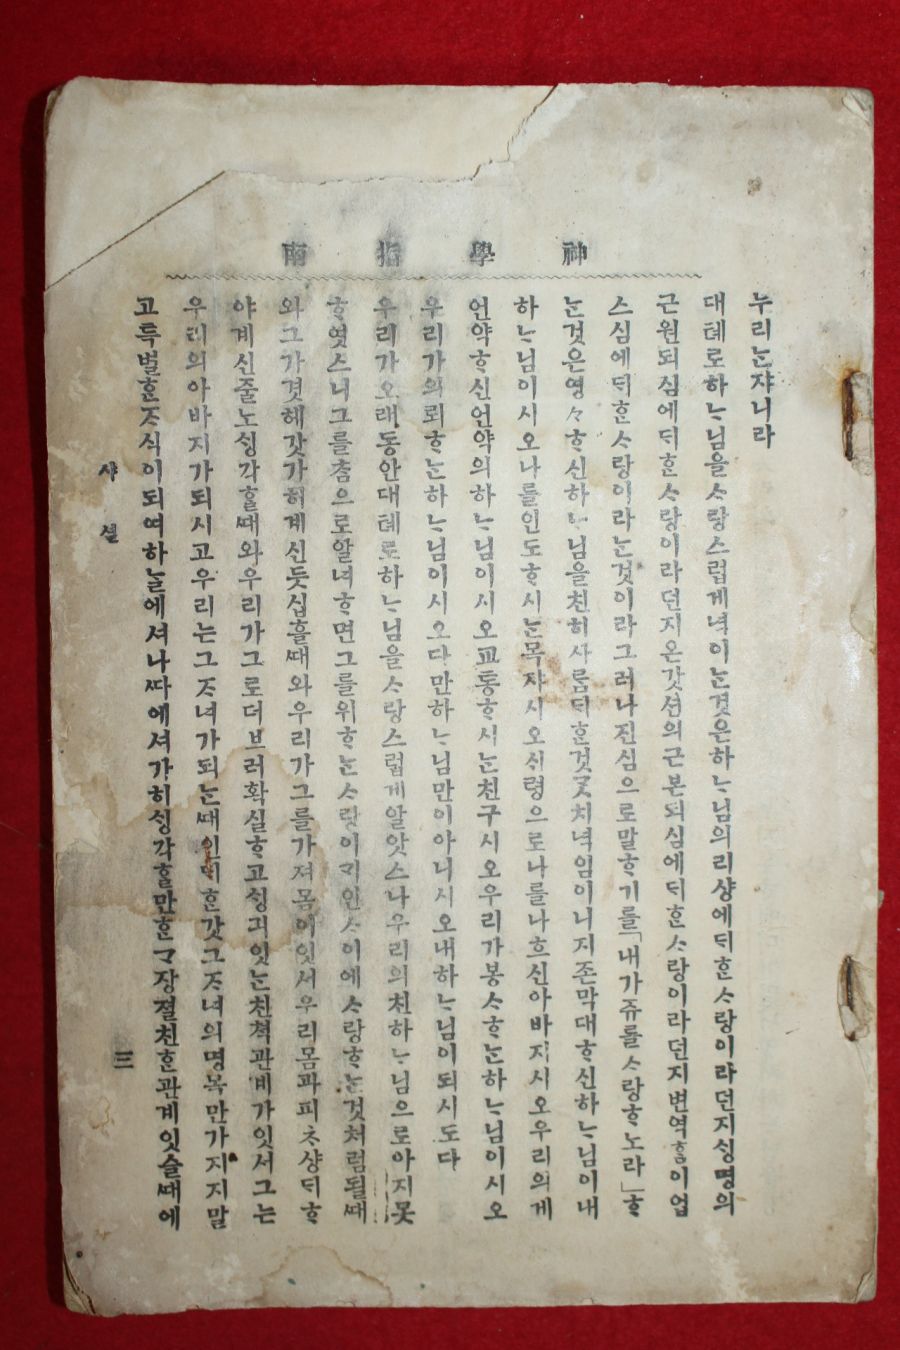 神學指南
누리ᄂᆞᆫ쟈니라
대톄로하ᄂᆞ님을ᄉᆞ랑스럽게녁이ᄂᆞᆫ것은하ᄂᆞ님의리샹에ᄃᆡᄒᆞᆫᄉᆞ랑이라던지ᄉᆡᆼ명의
근원되심에ᄃᆡᄒᆞᆫᄉᆞ랑이라던지온갓션의근본되심에ᄃᆡᄒᆞᆫᄉᆞ랑이라던지변역ᄒᆞᆷ이업
스심에ᄃᆡᄒᆞᆫᄉᆞ랑이라ᄂᆞᆫ것이라그러나진심으로말ᄒᆞ기를「내가쥬를ᄉᆞ랑ᄒᆞ노라」ᄒᆞ
ᄂᆞᆫ것은영々ᄒᆞ신하ᄂᆞ님을친히사ᄅᆞᆷᄃᆡᄒᆞᆫ것ᄀᆞᆺ치녁임이니지존막대ᄒᆞ신하ᄂᆞ님이내
하ᄂᆞ님이시오나를인도ᄒᆞ시ᄂᆞᆫ목쟈시오ᄉᆡᆼ령으로나를나흐신아바지시오우리의게
언약ᄒᆞ신언약의하ᄂᆞ님이시오교통ᄒᆞ시ᄂᆞᆫ친구시오우리가봉ᄉᆞᄒᆞᄂᆞᆫ하ᄂᆞ님이시오
우리가의뢰ᄒᆞᄂᆞᆫ하ᄂᆞ님이시오다만하ᄂᆞ님만이아니시오내하ᄂᆞ님이되시도다
우리가오래동안대톄로하ᄂᆞ님을ᄉᆞ랑스럽게알앗스나우리의친하ᄂᆞ님으로아지못
ᄒᆞ엿스니그를ᄎᆞᆷ으로알녀ᄒᆞ면그를위ᄒᆞᄂᆞᆫᄉᆞ랑이ᄀᆡ인ᄉᆞ이에ᄉᆞ랑ᄒᆞᄂᆞᆫ것처럼될ᄯᅢ
와그가겻헤갓가히계신듯십흘ᄯᅢ와우리가그를가져몸이잇서우리몸과피ᄎᆞ샹ᄃᆡᄒᆞ
야계신줄노ᄉᆡᆼ각ᄒᆞᆯᄯᅢ와우리가그로더브러확실ᄒᆞ고ᄉᆡᆼ긔잇ᄂᆞᆫ친쳑관계가잇서그는
우리의아바지가되시고우리는그ᄌᆞ녀가되ᄂᆞᆫᄯᅢ인ᄃᆡᄒᆞᆫ갓그ᄌᆞ녀의명목만가지지말
고특별ᄒᆞᆫᄌᆞ식이되여하ᄂᆞᆯ에셔나ᄯᅡ에셔가히ᄉᆡᆼ각ᄒᆞᆯ만ᄒᆞᆫᄀᆞ장졀친ᄒᆞᆫ관계잇슬ᄯᅢ에
샤셜
三